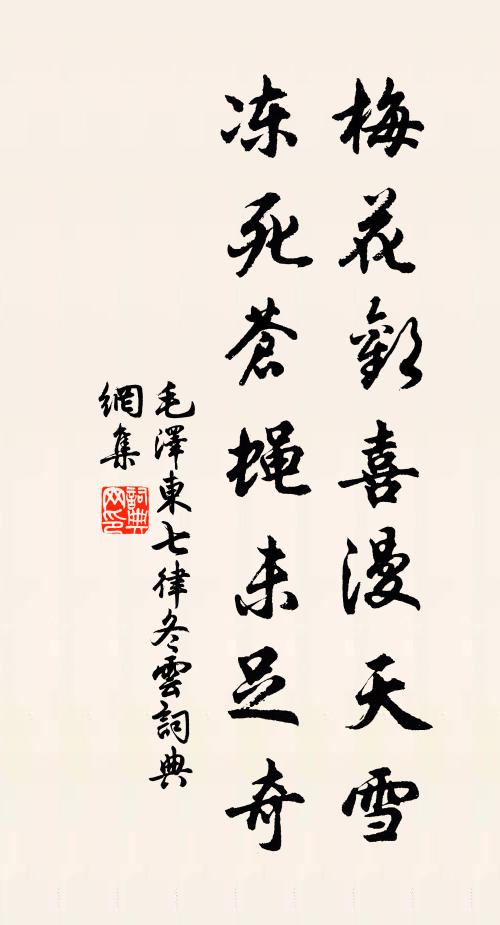 梅花歡喜漫天雪
冻死蒼蝇未足奇
毛澤東七律冬雲詞典
網集
詞典
网印